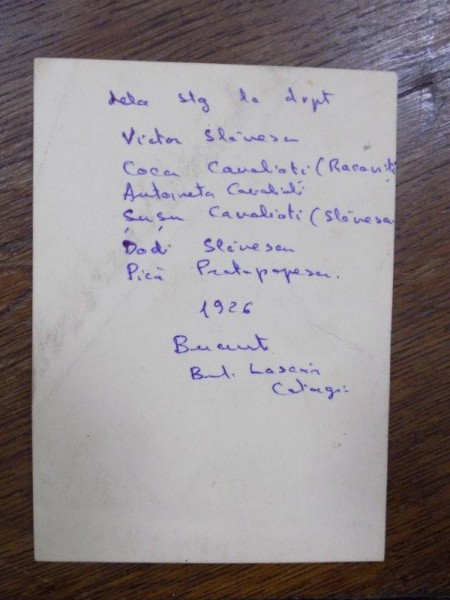 dela stg la drpt
Victor Slănescu
Coca Cavalioti (Racoviț
Antoineta Cavalioti
Șușu Cavalioti (Slănescu
Dodi Slănescu
Pică Protopopescu.
1926
Bucurest.
Bul. Lascăr
Catargi